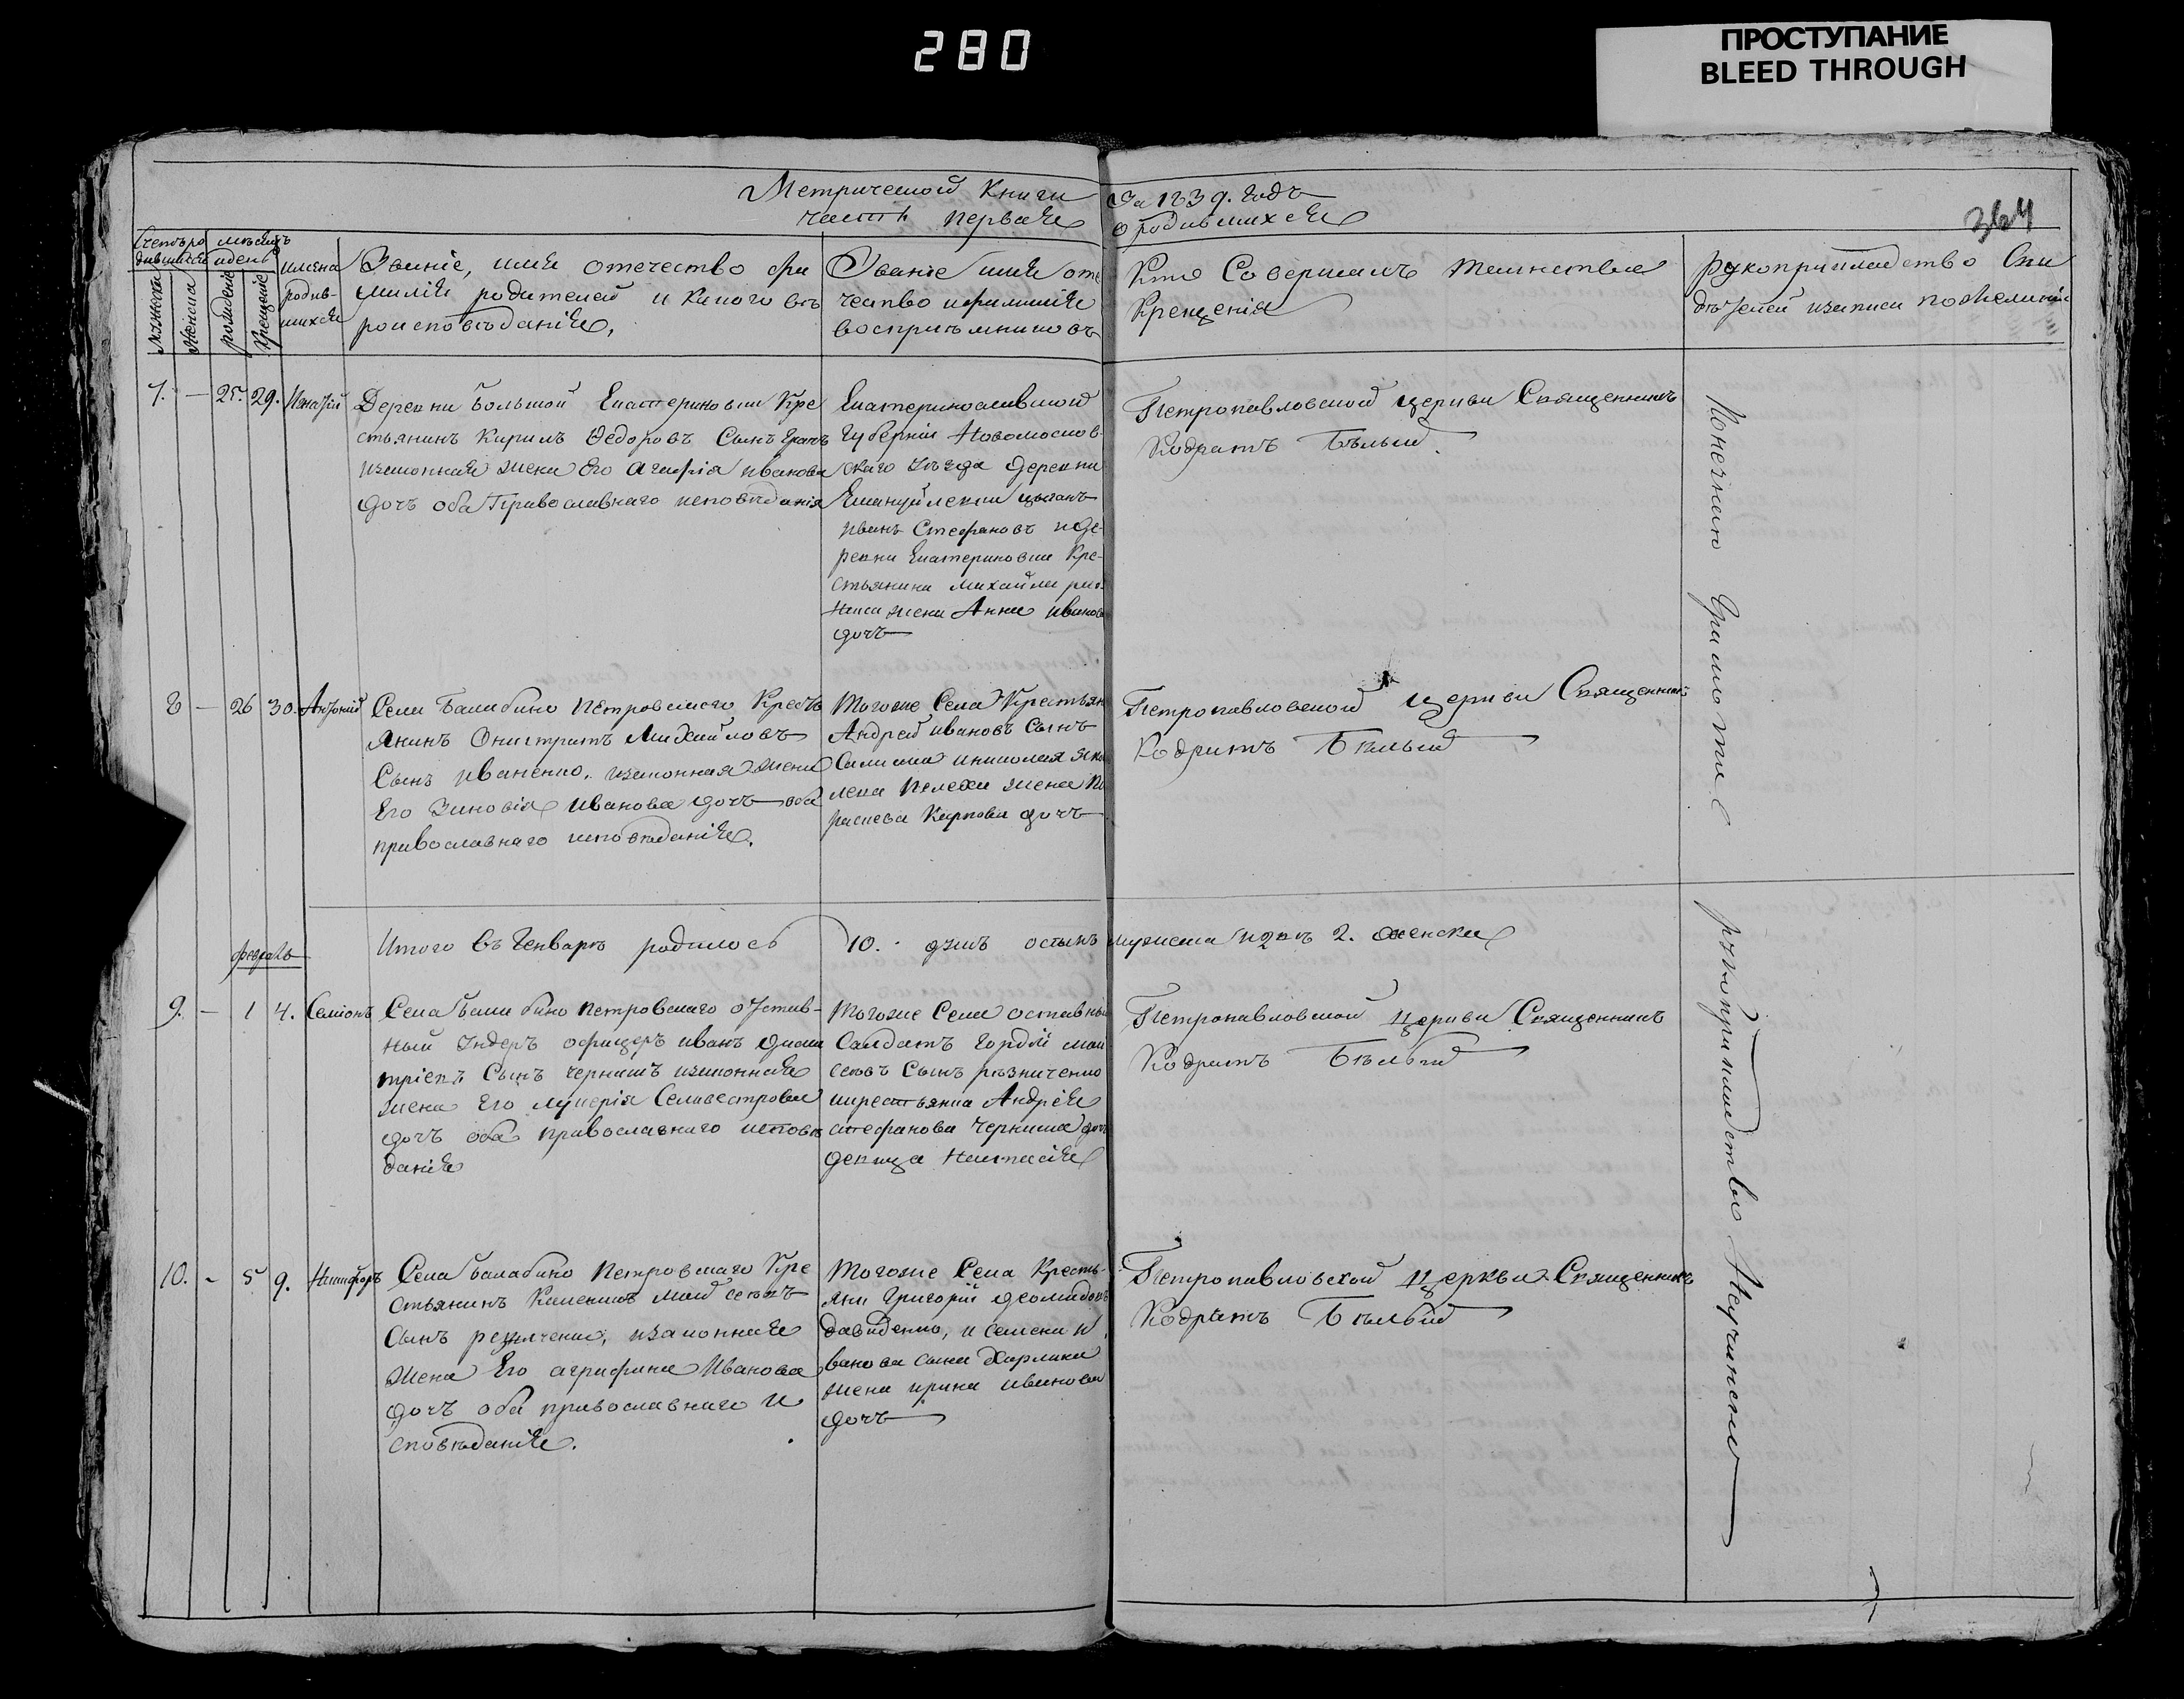 280
ПРОСТУПАНИЕ
BLEED THROUGH
Метрической Книги За 1839. годъ
часть первая о родившихся
364
Счетъ ро
дившихся
мужеска
женска
месяцъ
и день
рождение
крещение
имена
родив-
шихся
Звание, имя отечество фа
милия родителей и какого въ
роисповѣдания,
Звание имя оте
чество и фамилия
восприемниковъ
Кто Совершалъ таинство
Крещения
рукоприкладство Сви
дѣтелей записи по желанию
7. — 25. 29. Игнатий
Деревни большой Екатериновки Кре
стьянинъ Кирилъ Федоровъ Сынъ
изаконная жена Его Агафия иванова
дочь оба Православнаго исповѣдания
Екатеринославской
Губернии Новомосков-
скаго уѣзда деревни
Емануйловки цыганъ
иванъ Стефановъ и де-
ревни Екатериновки Кре-
стьянина Михайла
жена Анна иванова
дочь
Петропавловской церкви Священникъ
Кодратъ Бѣлый.
8 — 26 30. Антоний
Села Балабино Петровскаго Кресть
янинъ Онистратъ Михайловъ
Сынъ иваненко, изаконная жена
Его Зиновия Иванова дочь оба
православнаго исповѣдания.
Тогоже Села Крестьян
Андрей ивановъ Сынъ
жена Па
раскева Карпова дочь
Петропавловской церкви Священник
Кодратъ Бѣлый
Итого въ Генварѣ родилось 10. душъ мужеска 2. женска
февраль
9. — 1 4. Семионъ
Села балабино Петровскаго отстав-
ный ундеръ офицеръ иванъ дими
триевъ Сынъ чернишъ изаконная
жена Его лукерия Селивестрова
дочь оба православнаго исповѣ
дания
Тогоже Села оставный
Салдатъ Гордий мои
сеевъ Сынъ резниченко
икрестьянина Андрея
стефанова Черниша дочь
девица Настасия
Петропавловской церкви Священникъ
Кодратъ Бѣлый
10. - 5 9. Никифоръ
Села балабино Петровскаго Кре
стьянинъ Каленикъ Мойсеевъ
Сынъ резниченко, изаконная
жена Его агрифина Иванова
дочь оба православнаго и
сповѣдания.
Тогоже Села Кресть
яни Григорий деомидовъ
давиденко, и Семена и
ванова сына Харлана
жена ирина иванова
дочь
Петропавловской церкви Священникъ
Кодратъ Бѣлый
рукоприкладство